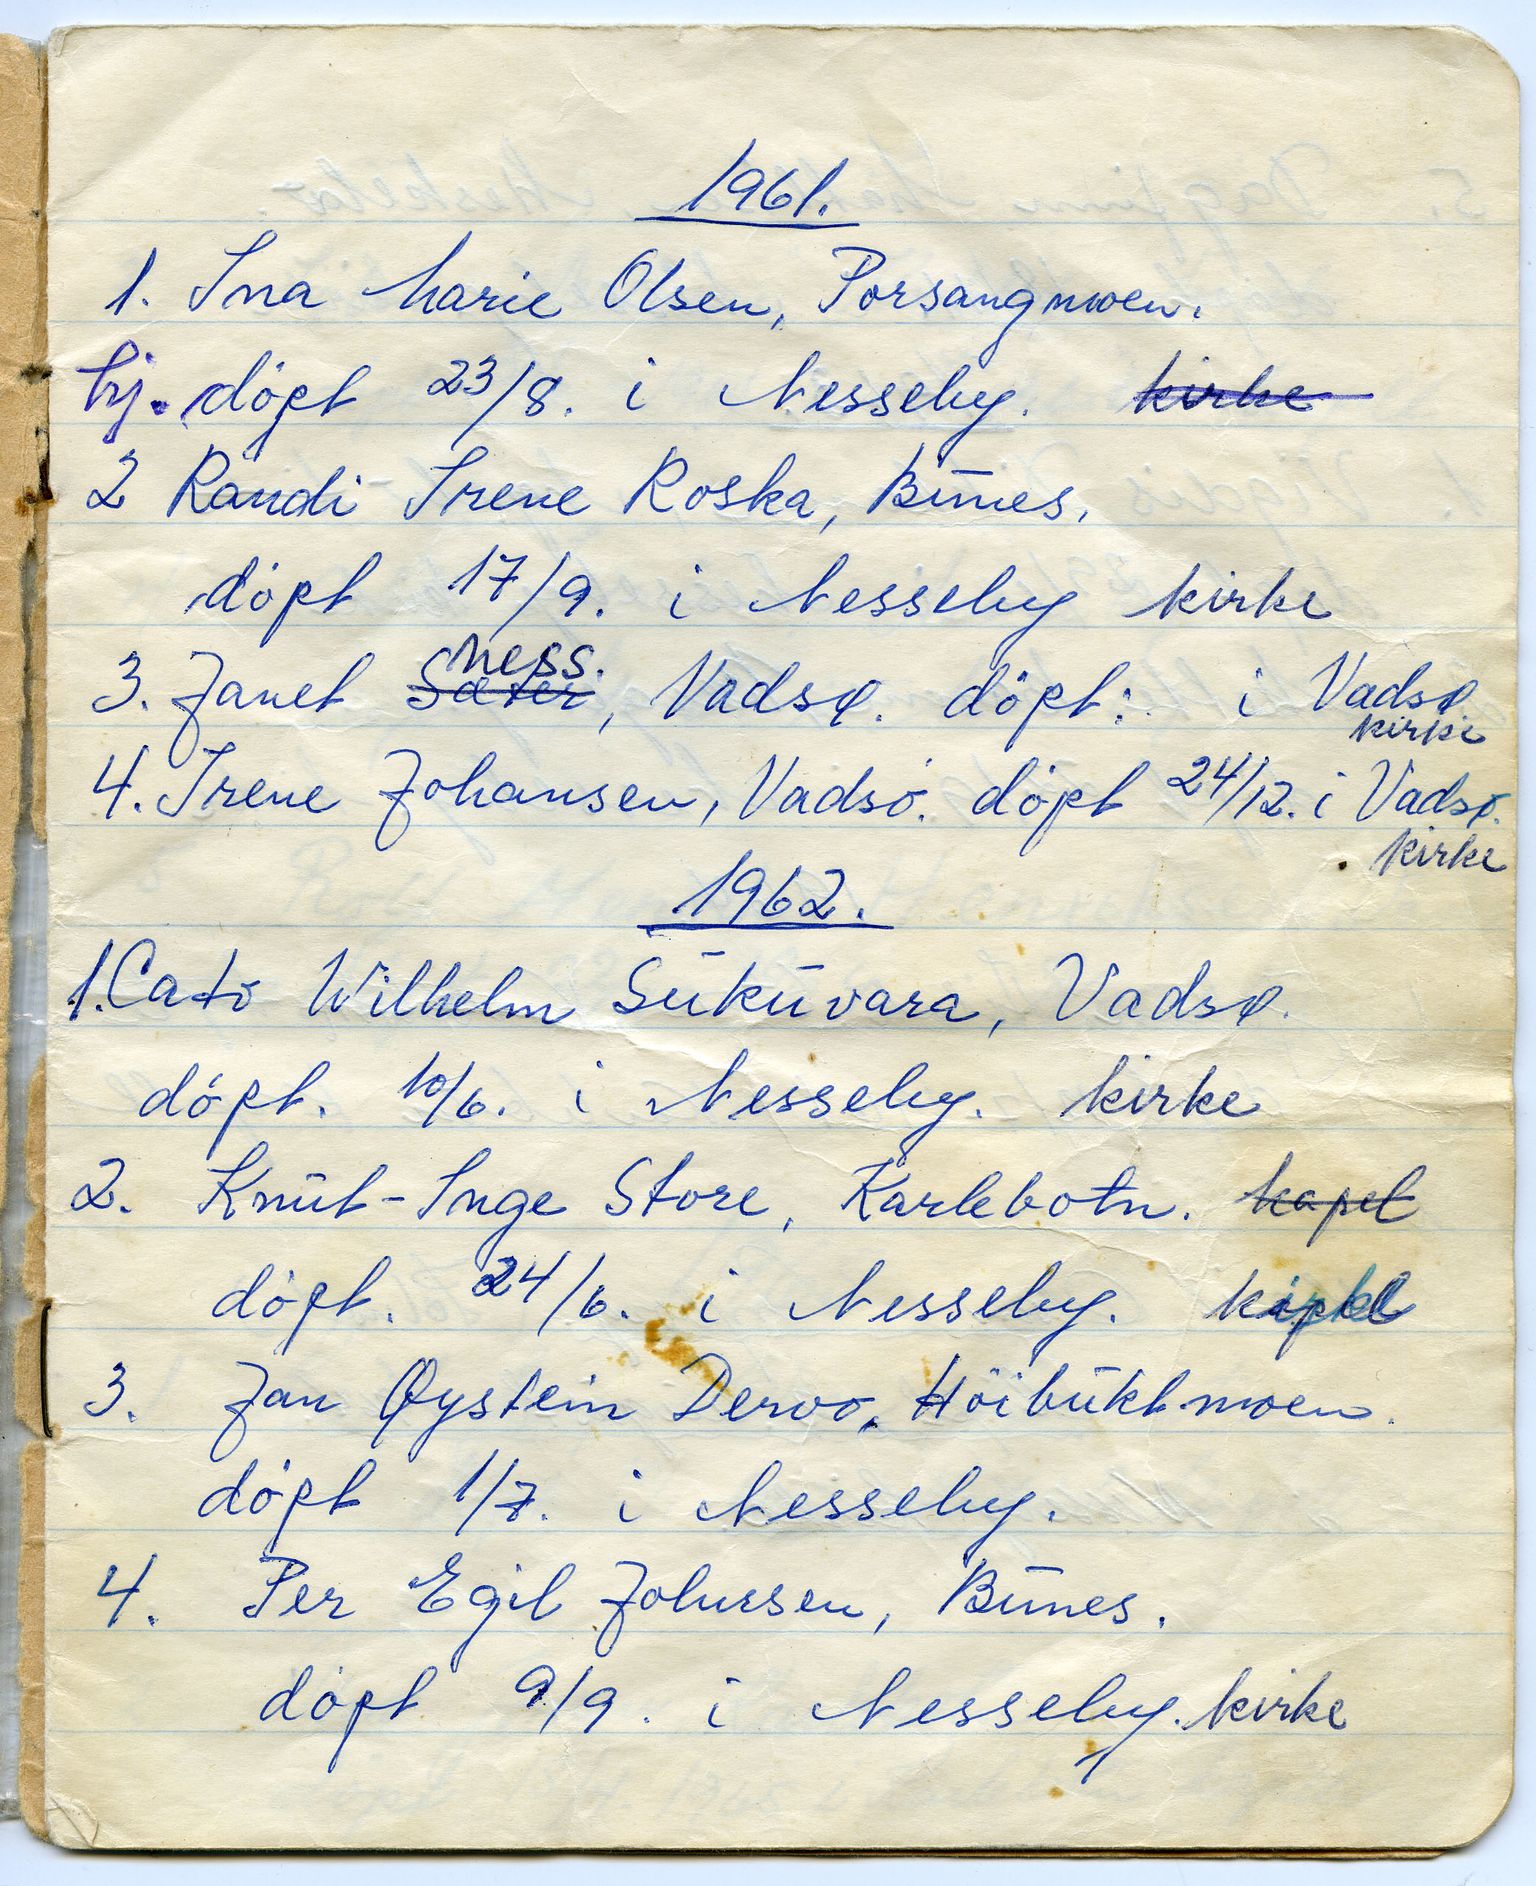 1961.
1. Ina Marie Olsen, Porsangmoen.
hj. döpt 23/8. i Nesseby. kirke
2 Randi Irene Roska, Bunes.
döpt 17/9. i Nesseby kirke
ness.
3. Janet Sæter, Vadsø. döpt: i Vadsø
kirke
4. Irene Johansen, Vadsö. döpt 24/12. i Vadsø.
kirke
1962.
1. Cato Wilhelm Sukuvara, Vadsø.
döpt. 10/6. i Nesseby. kirke
2. Knut-Inge Store, Karlebotn. kapel
döpt. 24/6. i Nesseby.
3. Jan Øystein Dervo, Höibuktmoen.
döpt 1/7. i Nesseby.
4. Per Egil Johnsen, Bunes.
döpt 9/9. i Nesseby. kirke